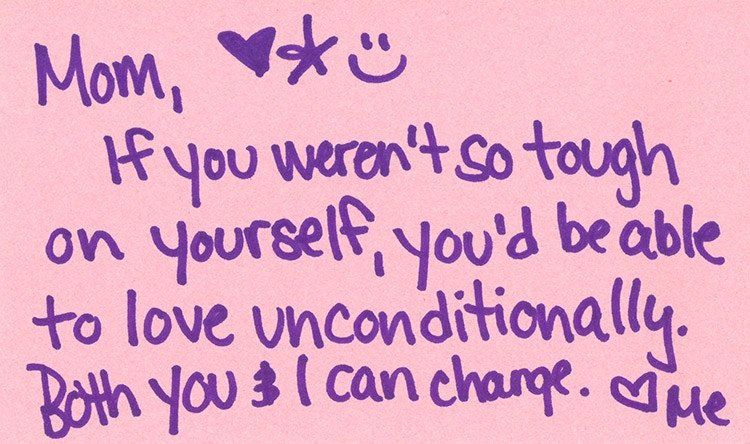 Mom,
If you weren't so tough
on yourself, you'd be able
to love unconditionally.
Both you & I can change. ♡ Me